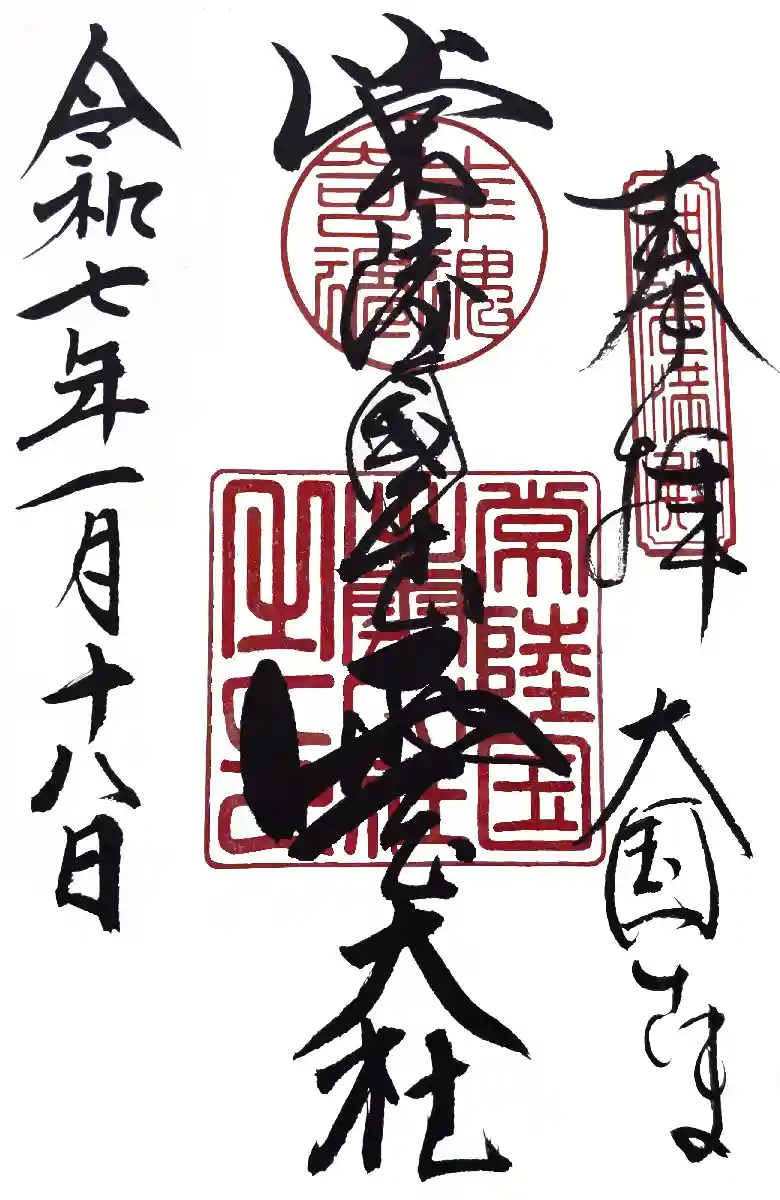 奉拝 大国さま
常陸國出雲大社
令和七年一月十八日
幸魂
奇魂
常陸国
出雲大社